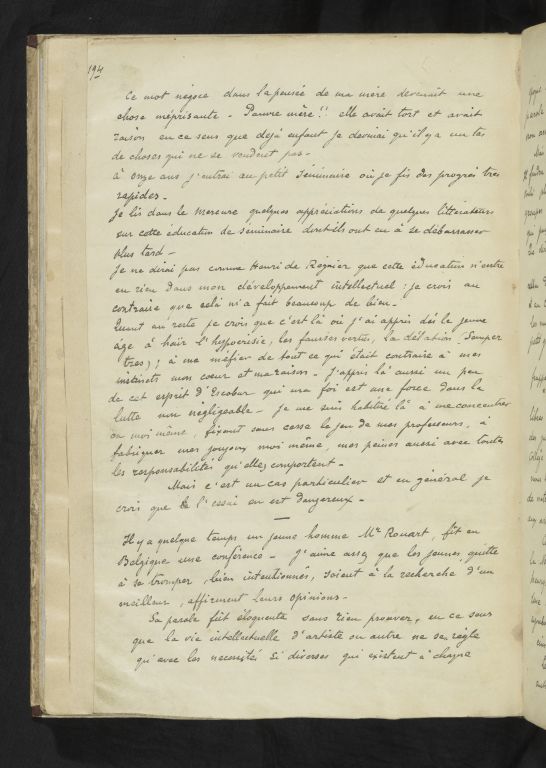 194
Ce mot négoce dans la pensée de ma mère devenait une
chose méprisante - Pauvre mère!! elle avait tort et avait
raison en ce sens que dejà enfant je devinai qu'il y a un tas
de choses qui ne se vendent pas -
à onze ans j'entrai au petit séminaire où je fis des progrès très
rapides -
Je lis dans le Mercure quelques appréciations de quelques littérateurs
sur cette éducation de séminaire dont ils ont eu à se débarrasser
plus tard -
Je ne dirai pas comme Henri de Régnier que cette éducation n'entre
en rien dans mon développement intellectuel : je crois au
contraire que celà m'a fait beaucoup de bien -
Quant au reste je crois que c'est là où j'ai appris dès le jeune
âge à haïr l'hypocrisie, les fausses vertus, la délation (Semper
tres); à me méfier de tout ce qui était contraire à mes
instincts mon coeur et ma raison - J'appris là aussi un peu
de cet esprit d'Escobar qui ma foi est une force dans la
lutte non négligeable - Je me suis habitué là à me concentrer
en moi même, fixant sans cesse le jeu de mes professeurs, à
fabriquer mes joujoux moi même, mes peines aussi avec toutes
les responsabilités qu'elles comportent -
Mais c'est un cas particulier et en général je
crois que l'essai en est dangereux -
Il y a quelque temps un jeune homme Mr Rouart, fit en
Belgique une conférence - J'aime assez que les jeunes, quitte
à se tromper, bien intentionnés, soient à la recherche d'un
meilleur, affirment leurs opinions -
Sa parole fût éloquente sans rien prouver, en ce sens
que la vie intellectuelle d'artiste ou autre ne se règle
qu'avec les necessités si diverses qui existent à chaque